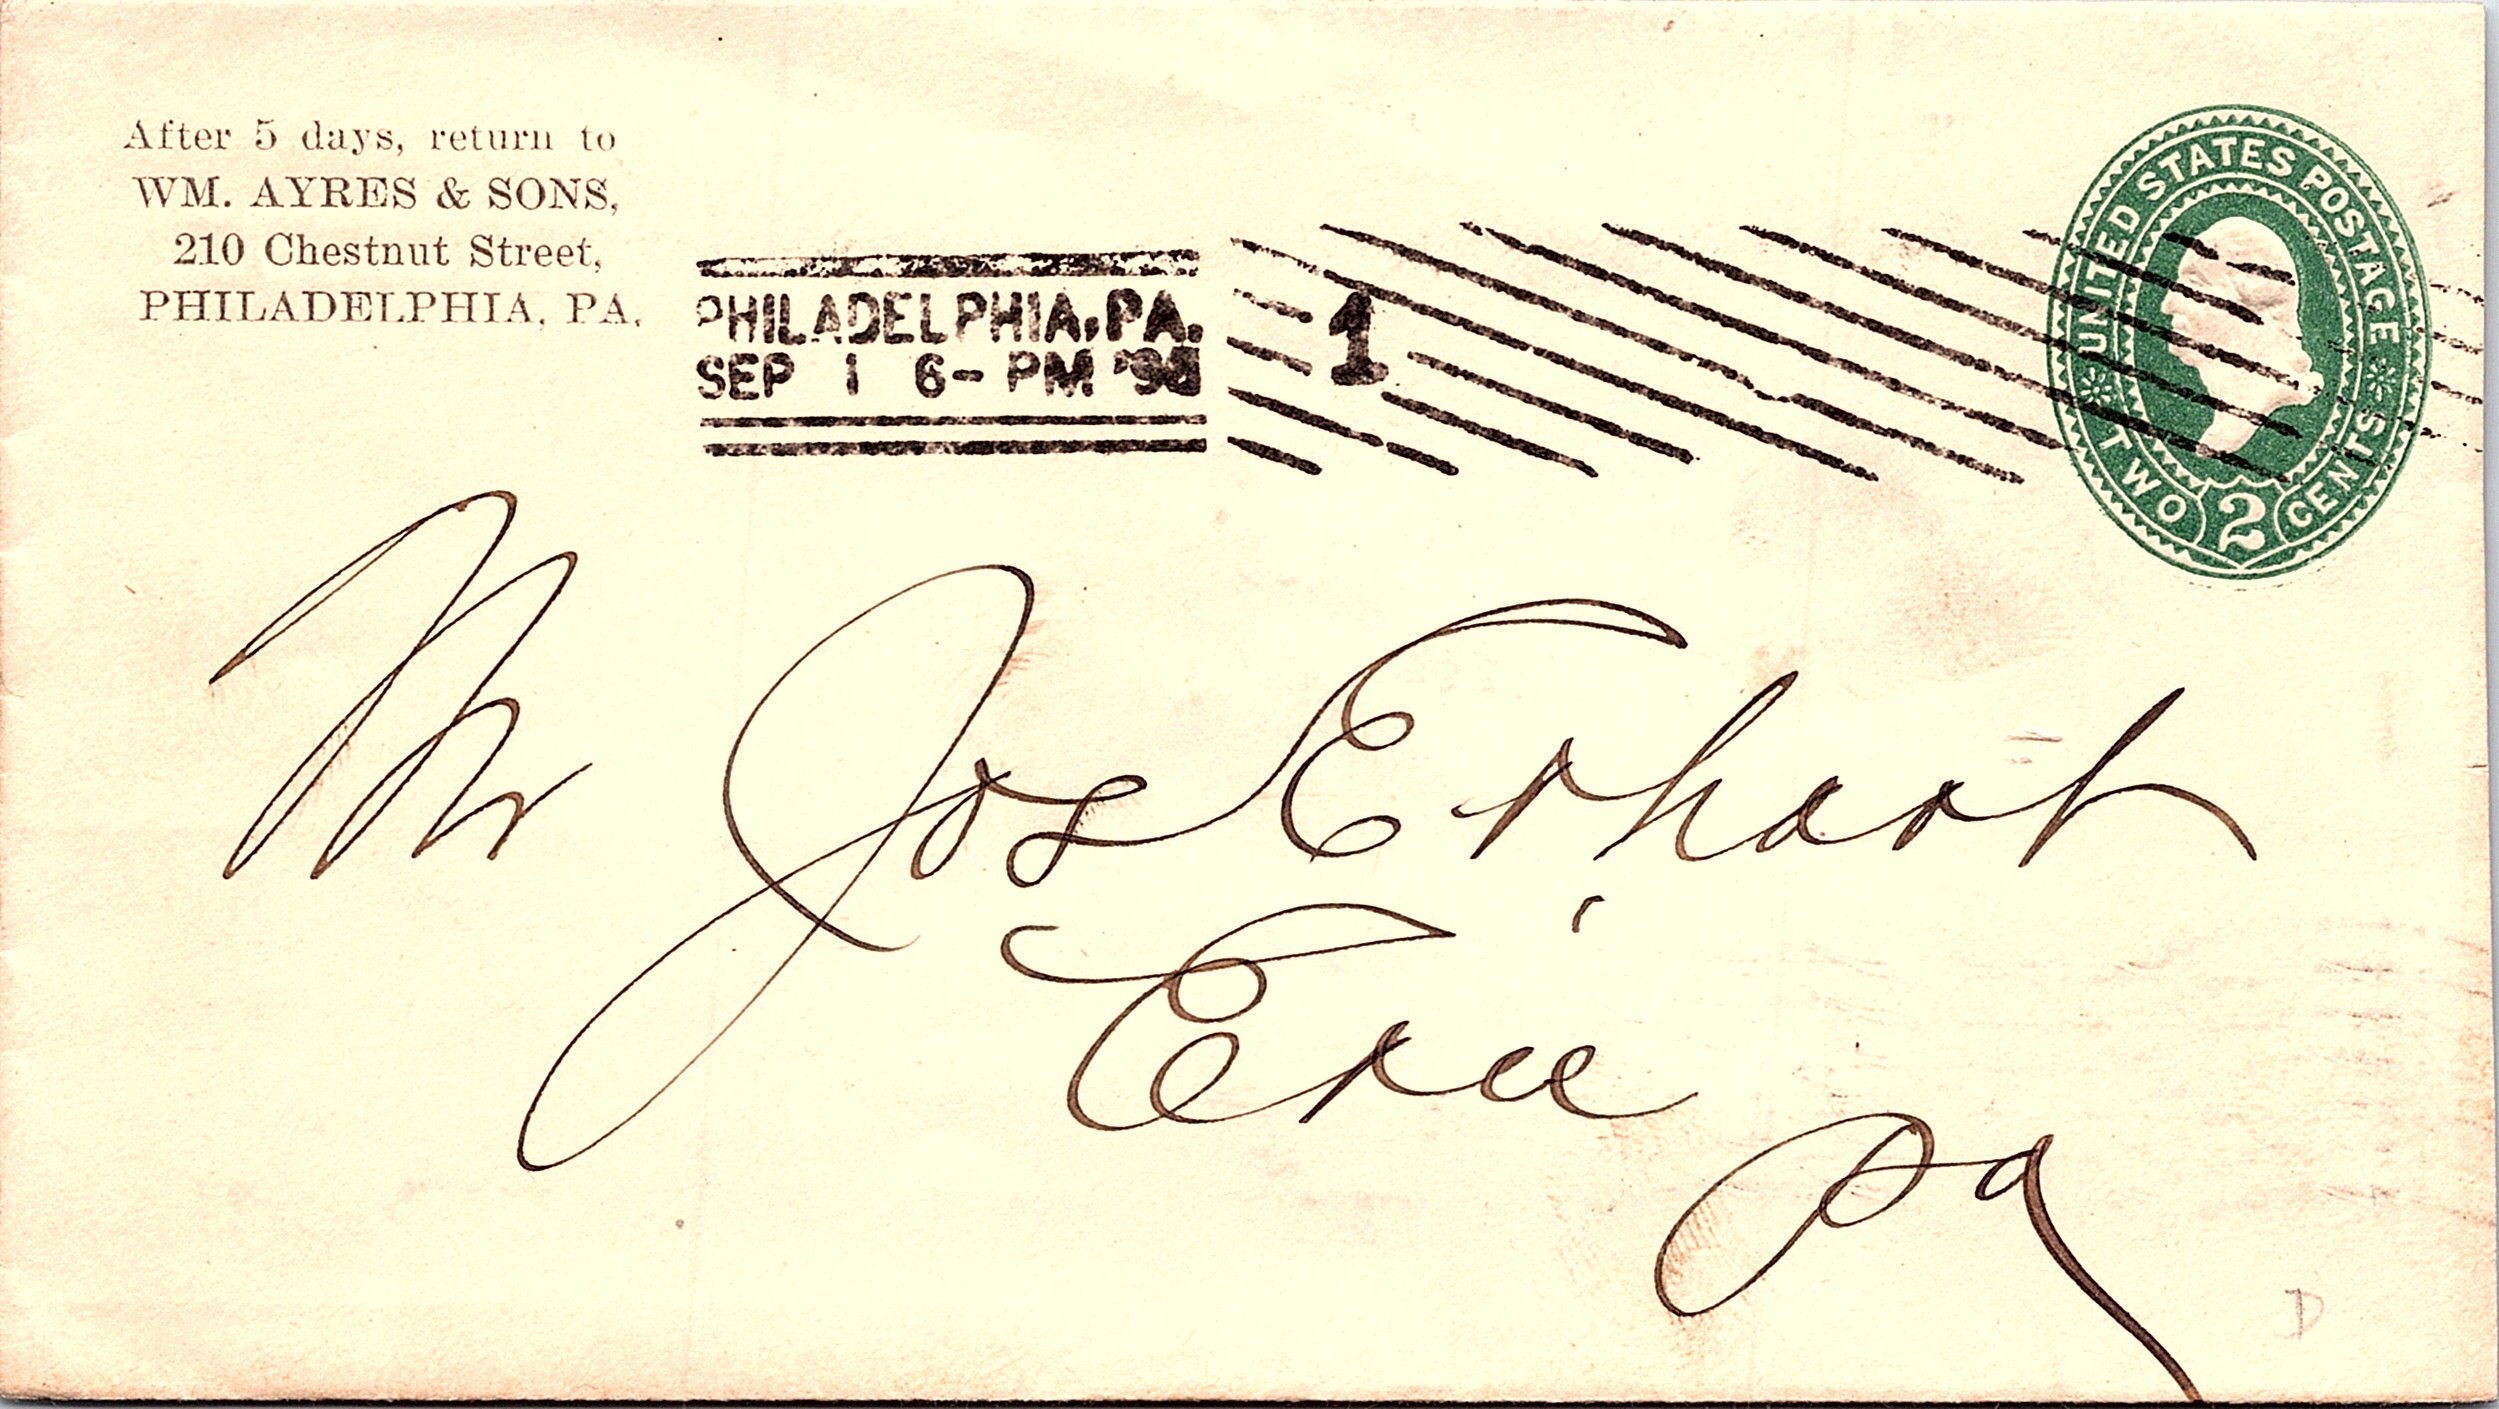 After 5 days, return to
WM. AYRES & SONS,
210 Chestnut Street,
PHILADELPHIA, PA.
PHILADELPHIA, PA.
SEP 1 6- PM
1
UNITED STATES POSTAGE
TWO 2 CENTS
Mr Jos Erhart
Erie
Pa
D